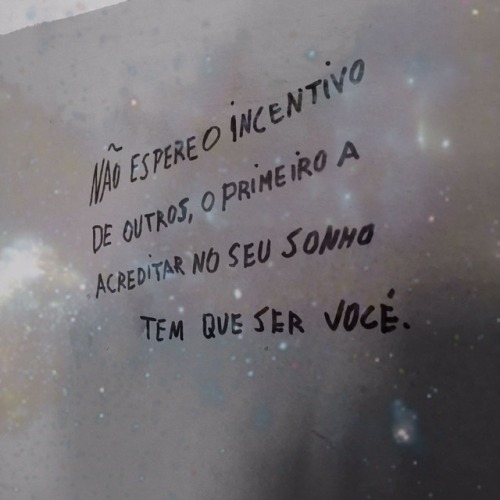 NÃO ESPERE O INCENTIVO
DE OUTROS, O PRIMEIRO A
ACREDITAR NO SEU SONHO
TEM QUE SER VOCÉ.